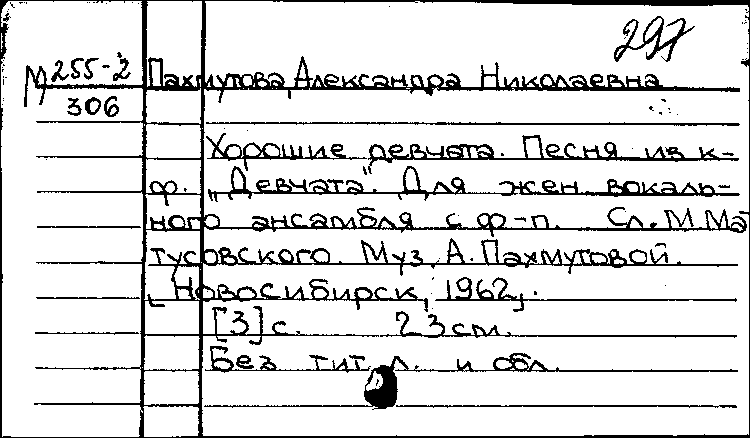 297
М 255-2 Пахмутова, Александра Николаевна
306
Хорошие девчата. Песня из к-
ф. "Девчата". Для жен вокаль-
ного ансамбля с ф-п. Сл. М Ма
тусовского. Муз. А. Пахмутовой.
[Новосибирск, 1962].
[3] с. 23 см.
Без тит. л. и обл.